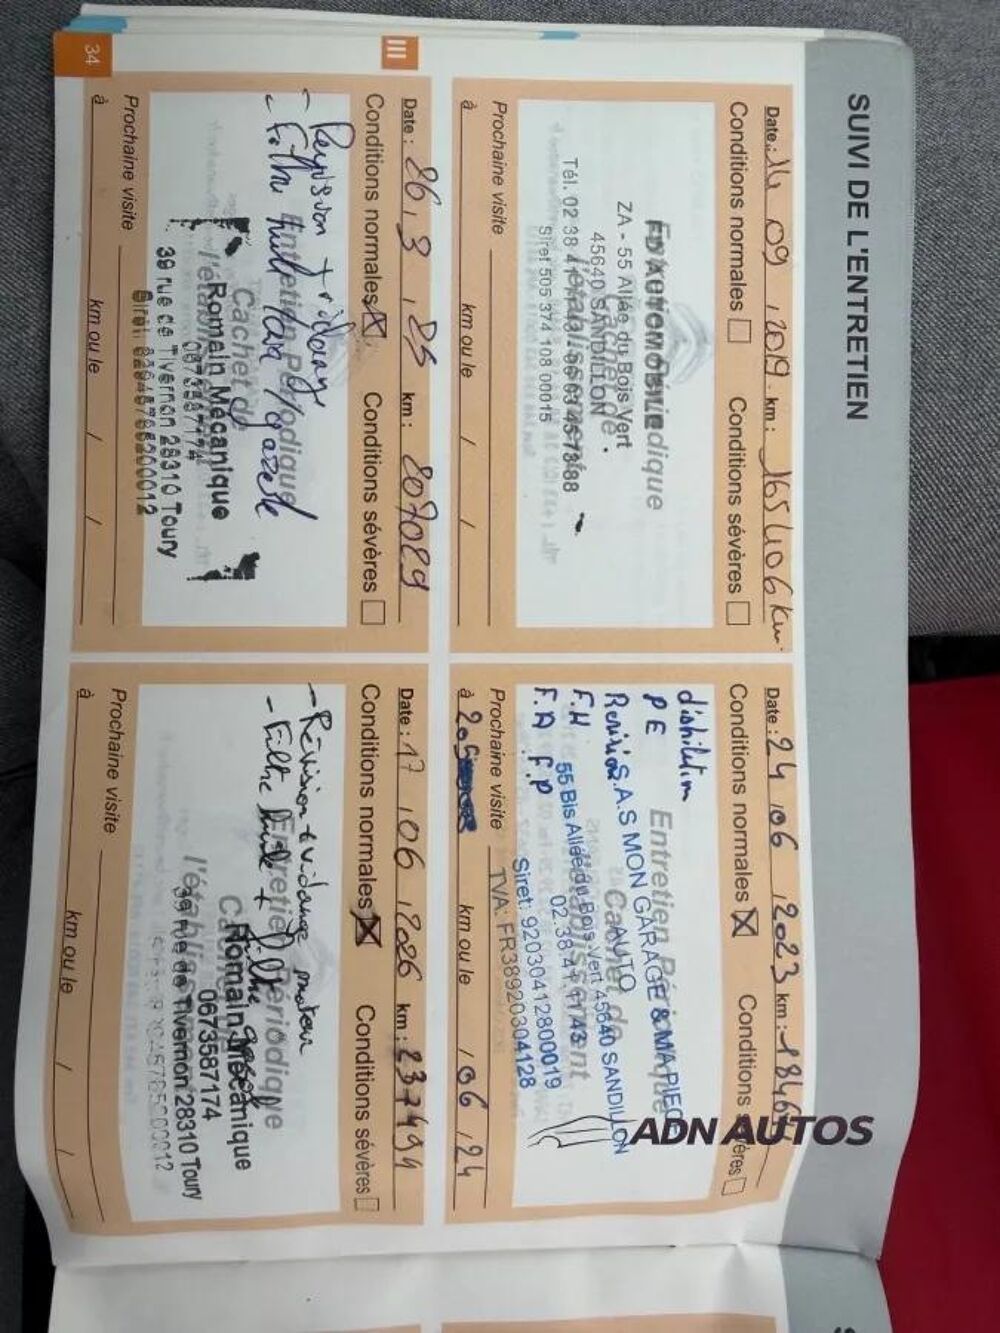 SUIVI DE L'ENTRETIEN
Date : 14 / 09 / 2019 km : 165406 km
Conditions normales Conditions sévères
FD AUTOMOBILE
ZA - 55 Allée du Bois Vert
45640 SANDILLON
Tél. 02 38
Siret 505 374 108 00015
Prochaine visite
à km ou le / /
Date : 24 / 06 / 2023 km :
Conditions normales X Conditions sévères
distribution
PE Entretien Périodique
Révision S.A.S MON GARAGE & MA PIECE
AUTO
F.H 55 Bis Allée du Bois Vert 45640 SANDILLON
F.A F.P 02.38.41.11.43
Siret: 92030412800019
TVA: FR38920304128
Prochaine visite
à km ou le / 06 / 24
ADN AUTOS
III
Date : 26 / 3 / 25 km : 207089
Conditions normales X Conditions sévères
- Révision + vidange
- Filtre huile
Entretien Périodique
Cachet de
l'établissement
Romain Mécanique
0673587174
39 rue de Tivernon 28310 Toury
Prochaine visite
à km ou le / /
34
Date : 17 / 06 / 2026 km : 237494
Conditions normales X Conditions sévères
- Révision + vidange moteur
- Filtre huile + filtre
Entretien Périodique
Romain Mécanique
0673587174
39 rue de Tivernon 28310 Toury
Prochaine visite
à km ou le / /